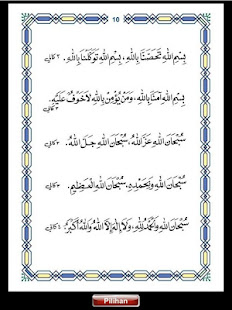 بِسْمِ اللهِ تَحَصَّنَّا بِاللهِ، بِسْمِ اللهِ تَوَكَّلْنَا بِاللهِ. كالي
بِسْمِ اللهِ آمَنَّا بِاللهِ، وَمَنْ يُؤْمِنْ بِاللهِ لَاخَوْفٌ عَلَيْهِ. كالي
سُبْحَانَ اللهِ عَزَّ اللهُ، سُبْحَانَ اللهِ جَلَّ اللهُ. كالي
سُبْحَانَ اللهِ وَبِحَمْدِهِ، سُبْحَانَ اللهِ الْعَظِيْمِ. كالي
سُبْحَانَ اللهِ وَالْحَمْدُ لِلهِ، وَلَا إِلٰهَ إِلَّا اللهُ وَاللهُ أَكْبَرُ. كالي
Pilihan